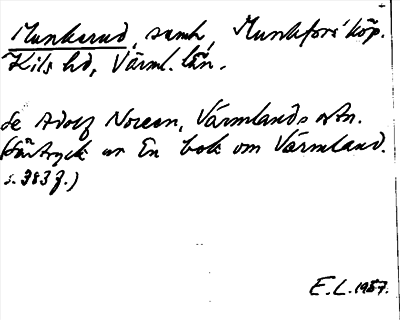 Munkerud, samh, Munkfors köp.
Kils hd, Värml. län.
Se Adolf Noreen, Värmlands otn.
(Särtryck ur En bok om Värmland.
s. 383 f.)
E.L. 1957.